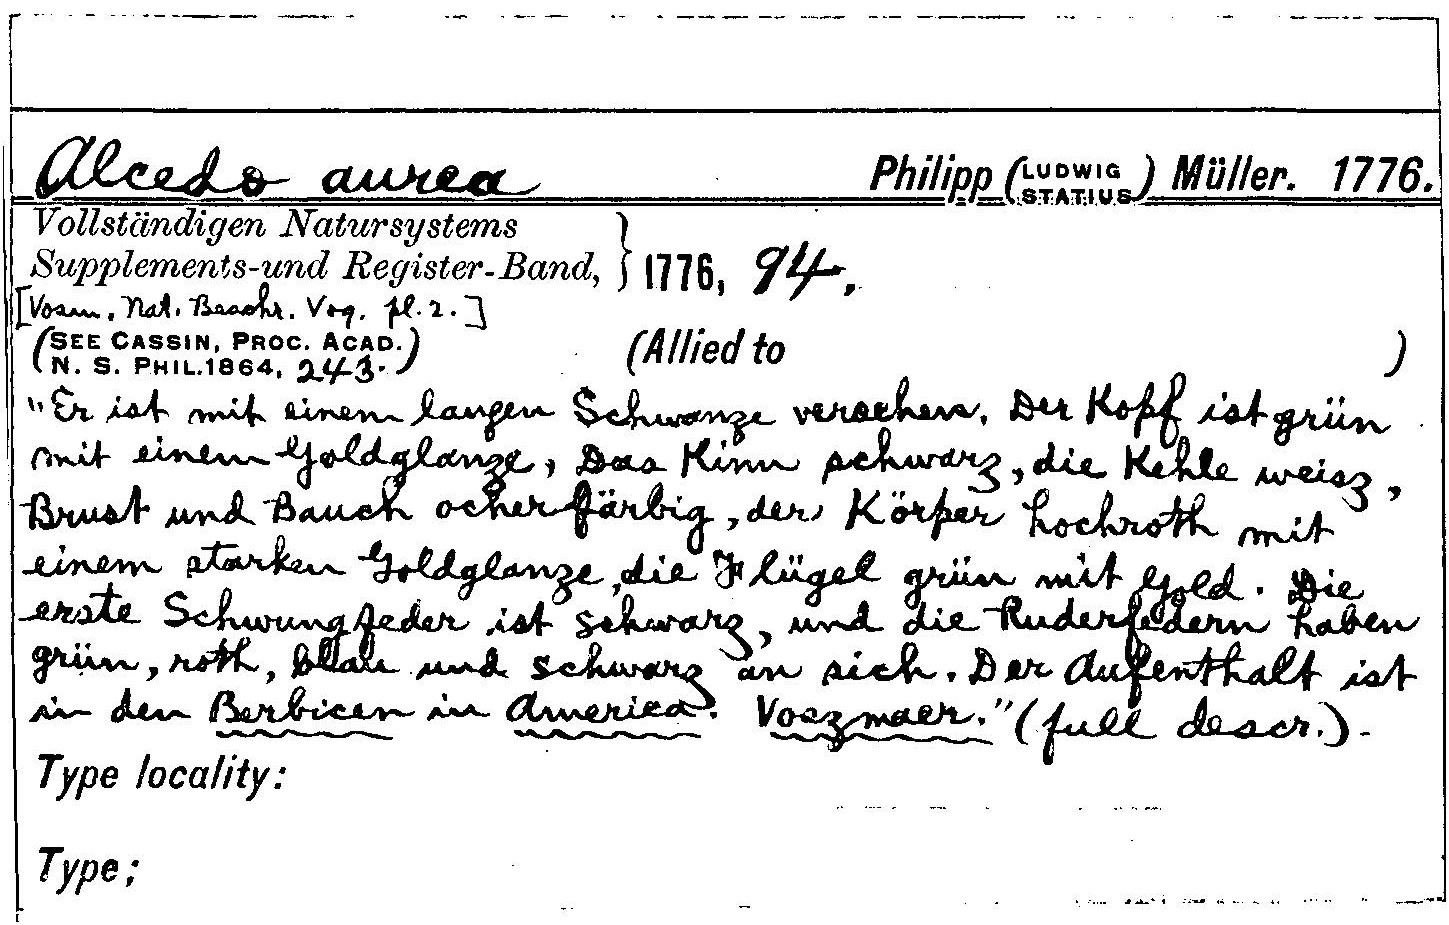 Alcedo aurea Philipp (LUDWIG STATIUS) Müller. 1776.
Vollständigen Natursystems
Supplements-und Register-Band, } 1776, 94.
[Vosm. Nat. Beschr. Vog. pl. 2.]
(SEE CASSIN, PROC. ACAD.
N. S. PHIL. 1864, 243.) (Allied to )
"Er ist mit einem langen Schwanze versehen. Der Kopf ist grün
mit einem Goldglanze, Das Kinn schwarz, die Kehle weisz,
Brust und Bauch ocherfärbig, der Körper hochroth mit
einem starken Goldglanze, die Flügel grün mit Gold. Die
erste Schwungfeder ist schwarz, und die Ruderfedern haben
grün, roth, blau und schwarz an sich. Der Aufenthalt ist
in den Berbicen in America. Voszmaer." (full descr.).
Type locality:
Type;